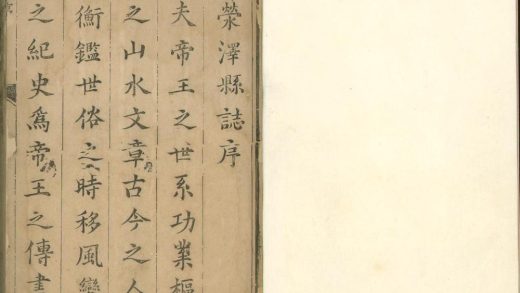 滎澤縣誌序
夫帝王之世系功業樞
之山水文章古今之人
衡鑑世俗之時移風變
之紀史爲帝王之傳畫